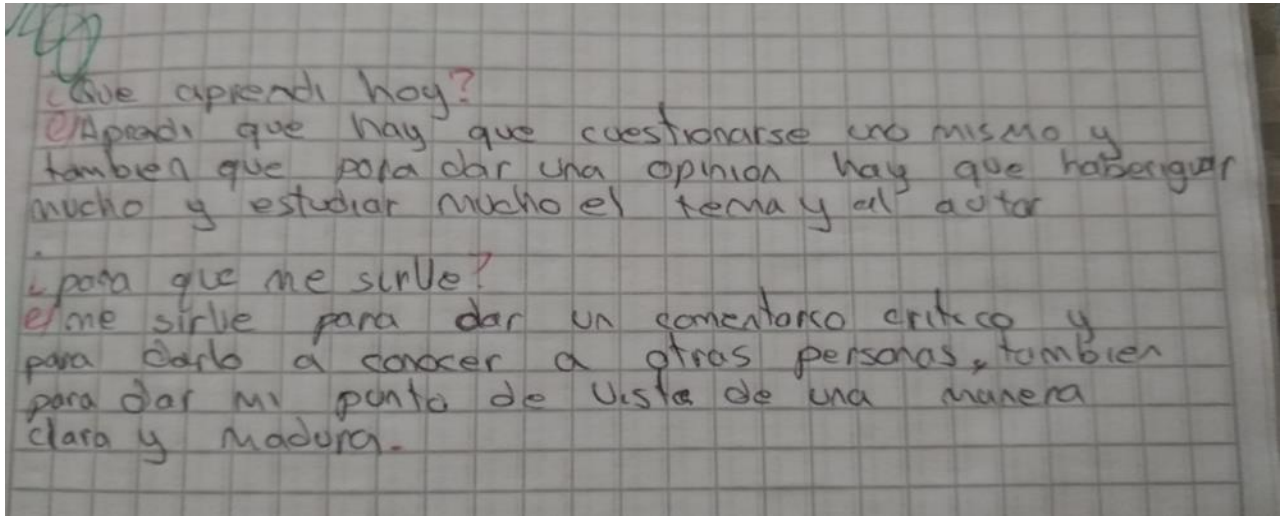 ¿Que aprendi hoy?
R/Aprendi que hay que cuestionarse uno mismo y
tambien que para dar una opinion hay que haberiguar
mucho y estudiar mucho el tema y al autor
¿para que me sirve?
R/me sirve para dar un comentario critico y
para darlo a conocer a otras personas, tambien
para dar mi punto de vista de una manera
clara y madura.